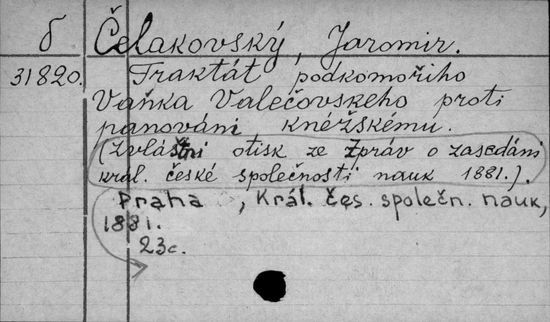 б Čelakovský, Jaromir.
31820. Traktát podkomořiho
Vaňka Valečovskeho proti
panováni kněžskému.
(Zvláštni otisk ze Zpráv o zasedáni
král. české společnosti nauk 1881.).
Praha , Král. čes. společn. nauk,
1881.
23c.